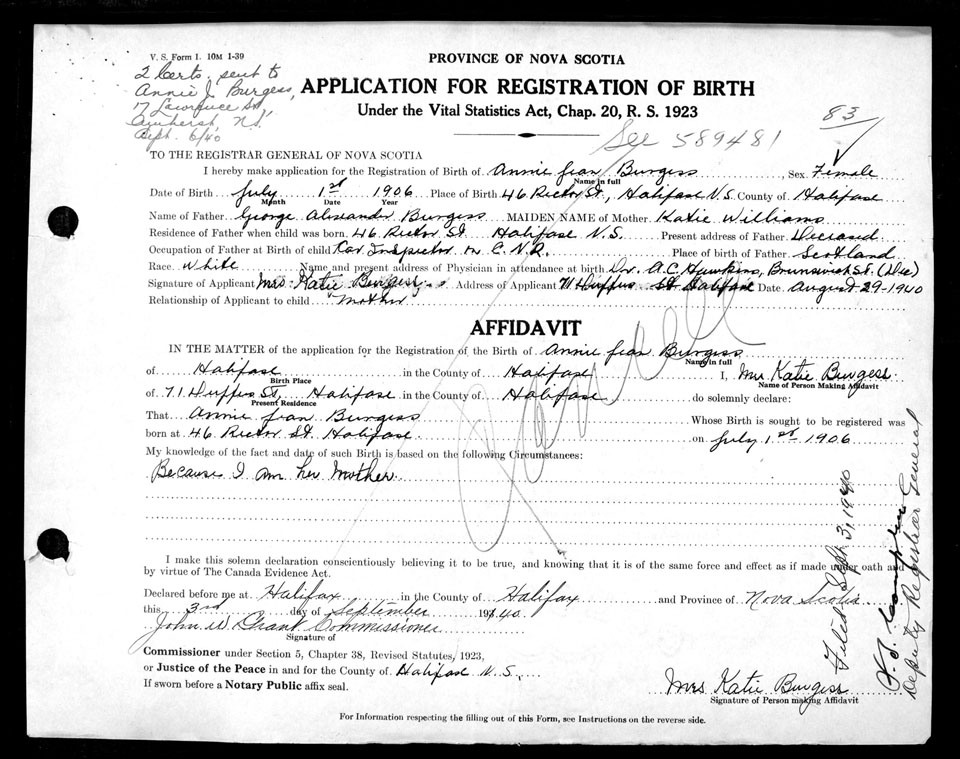 V. S. Form 1. 10M 1-39
2 Certs. sent to
Annie J. Burgess,
17 Lawrence St,
Amherst, N.S.
Sept. 6/40
PROVINCE OF NOVA SCOTIA
APPLICATION FOR REGISTRATION OF BIRTH
Under the Vital Statistics Act, Chap. 20, R. S. 1923
83
See 589481
TO THE REGISTRAR GENERAL OF NOVA SCOTIA
I hereby make application for the Registration of Birth of Annie Jean Burgess Sex Female
Name in full
Date of Birth July 1st 1906 Place of Birth 46 Rector St, Halifax N.S. County of Halifax
Month Date Year
Name of Father George Alexander Burgess MAIDEN NAME of Mother Katie Williams
Residence of Father when child was born 46 Rector St Halifax N.S. Present address of Father Deceased
Occupation of Father at Birth of child Car Inspector on C.N.R. Place of birth of Father Scotland
Race White Name and present address of Physician in attendance at birth Dr. A.C. Hawkins, Brunswick St. (Dec)
Signature of Applicant Mrs Katie Burgess Address of Applicant 71 Duffus St Halifax Date August 29-1940
Relationship of Applicant to child Mother
AFFIDAVIT
IN THE MATTER of the application for the Registration of the Birth of Annie Jean Burgess
Name in full
of Halifax in the County of Halifax I, Mrs Katie Burgess
Birth Place Name of Person Making Affidavit
of 71 Duffus St, Halifax in the County of Halifax do solemnly declare:
Present Residence
That Annie Jean Burgess Whose Birth is sought to be registered was
born at 46 Rector St. Halifax on July 1st 1906
My knowledge of the fact and date of such Birth is based on the following Circumstances:
Because I am her Mother.
I make this solemn declaration conscientiously believing it to be true, and knowing that it is of the same force and effect as if made under oath and
by virtue of The Canada Evidence Act.
Declared before me at Halifax in the County of Halifax and Province of Nova Scotia
this 3rd day of September 1940
John W Grant Commissioner
Signature of
Commissioner under Section 5, Chapter 38, Revised Statutes, 1923,
or Justice of the Peace in and for the County of Halifax N.S.
If sworn before a Notary Public affix seal.
Mrs Katie Burgess
Signature of Person making Affidavit
For Information respecting the filling out of this Form, see Instructions on the reverse side.
Filed Sept 3, 1940
Deputy Registrar General